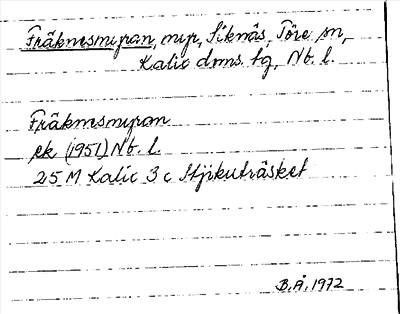 Fräkmesmyran, myr, Siknäs, Töre sn,
Kalix dms. tg, Nb. l.
Fräkmesmyran
ek (1951) Nb. l.
25 M Kalix 3 c Stjikuträsket
B.Å. 1972